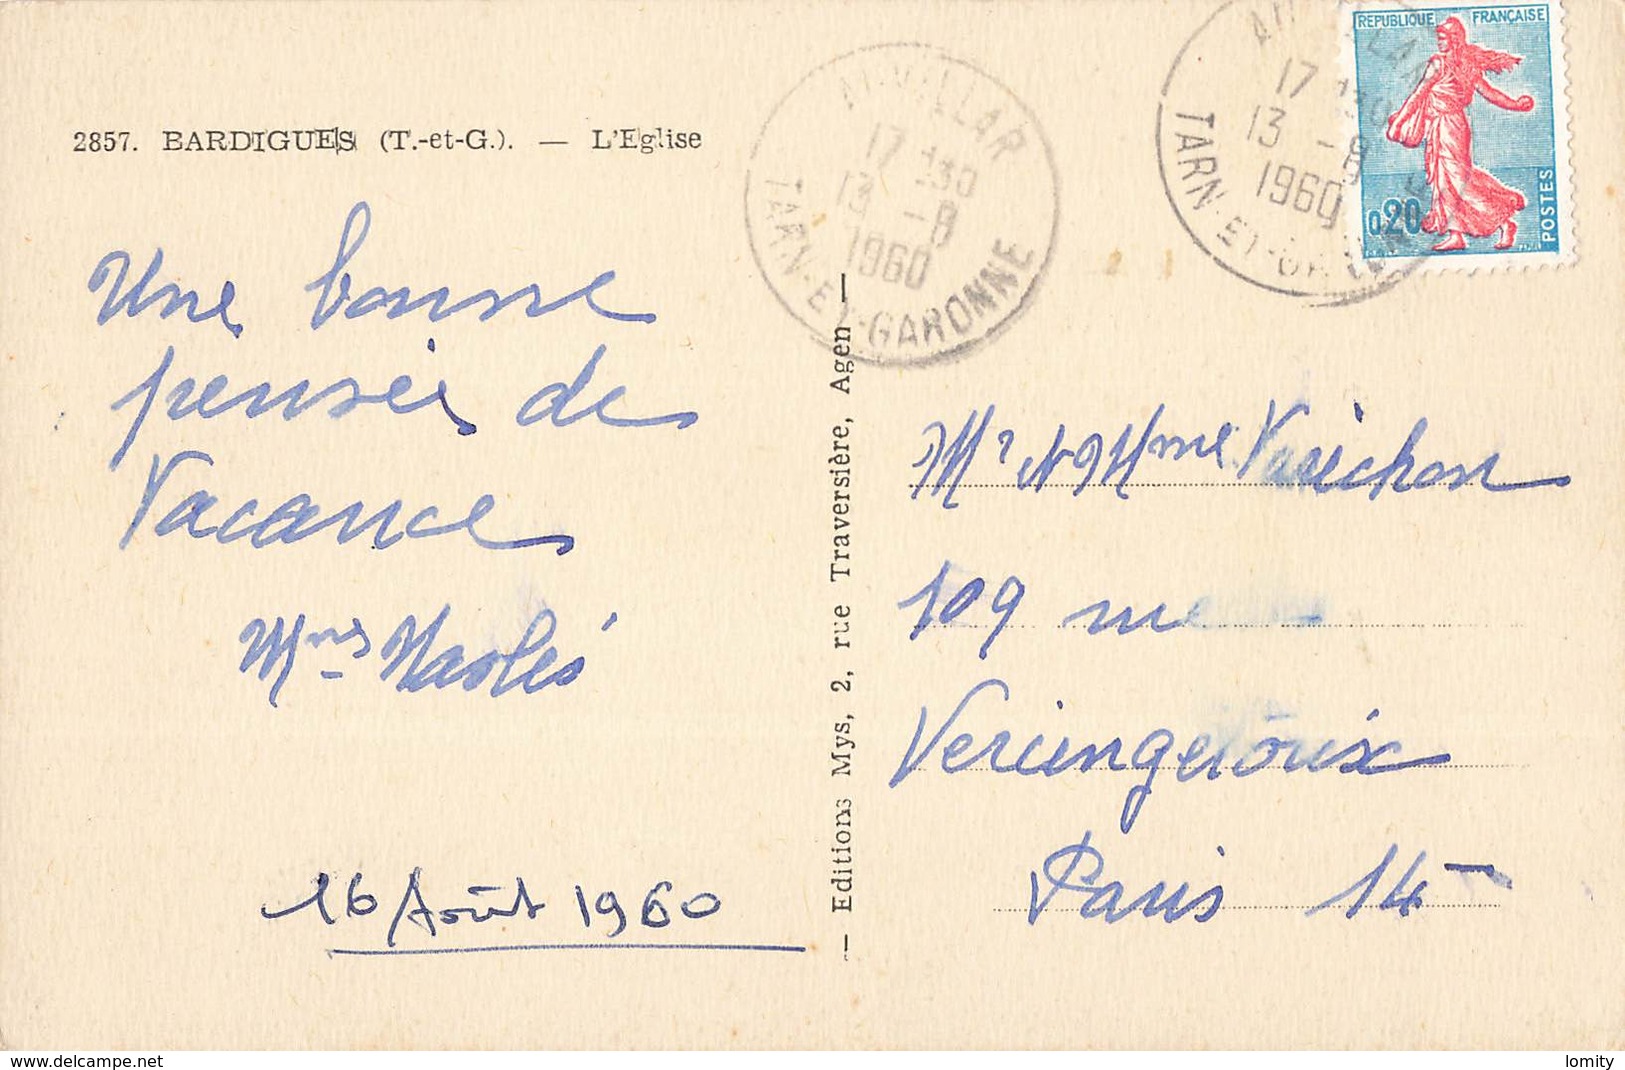 2857. BARDIGUES (T.-et-G.). — L'Eglise
AUVILLAR
17 30
13 - 8
1960
TARN-ET-GARONNE
17 30
13 - 8
1960
TARN-ET-GARONNE
REPUBLIQUE FRANÇAISE
0,20
POSTES
Une bonne
pensée de
Vacance
16 Août 1960
— Editions Mys, 2, rue Traversière, Agen —
Mr et Mme Varichon
109 rue
Vercingetorix
Paris 14
www.delcampe.net
lomity